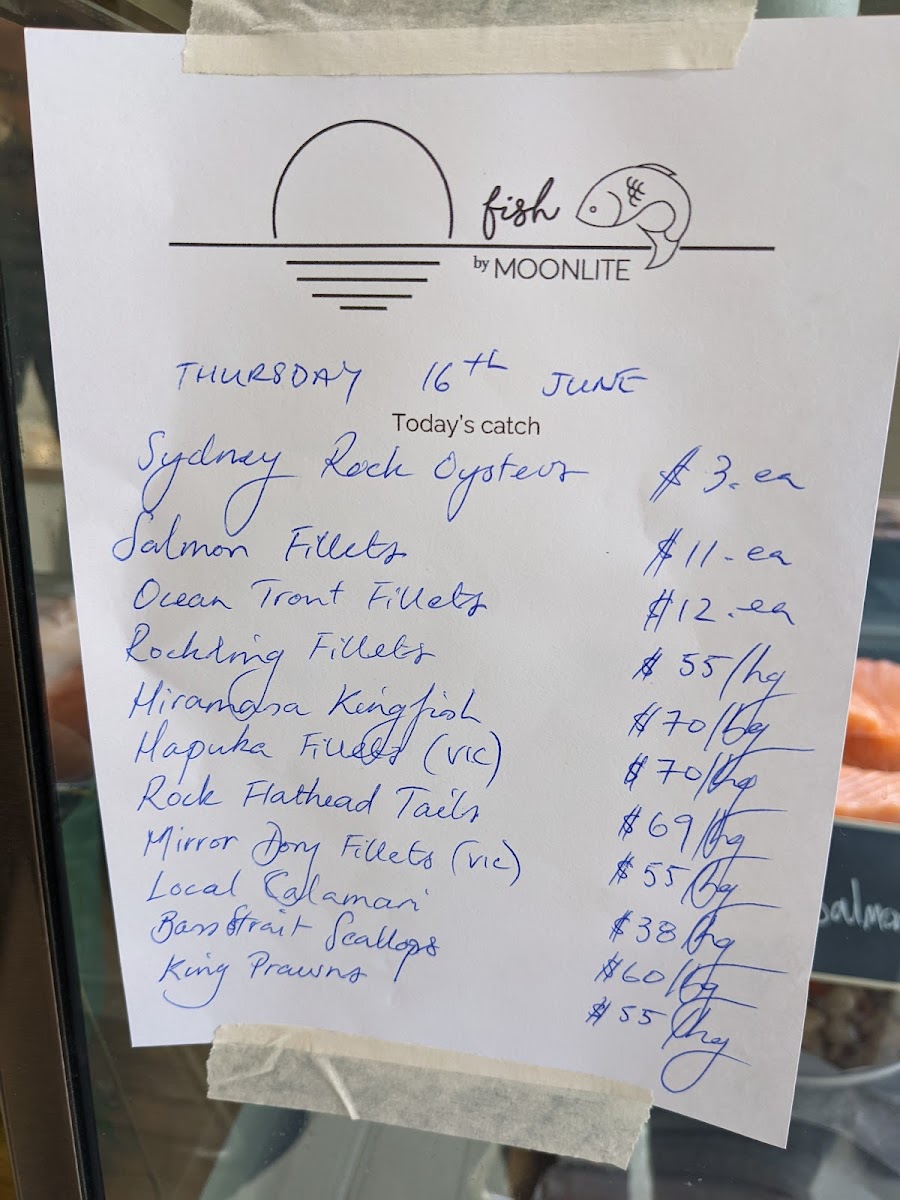 fish
by MOONLITE
THURSDAY 16th JUNE
Today's catch
Sydney Rock Oysters $3.ea
Salmon Fillets $11-ea
Ocean Trout Fillets $12.ea
Rockling Fillets $55/kg
Hiramasa Kingfish $70/kg
Hapuka Fillets (VIC) $70/kg
Rock Flathead Tails $69/kg
Mirror Dory Fillets (VIC) $55/kg
Local Calamari $38/kg
Bass Strait Scallops $60/kg
King Prawns $55/kg